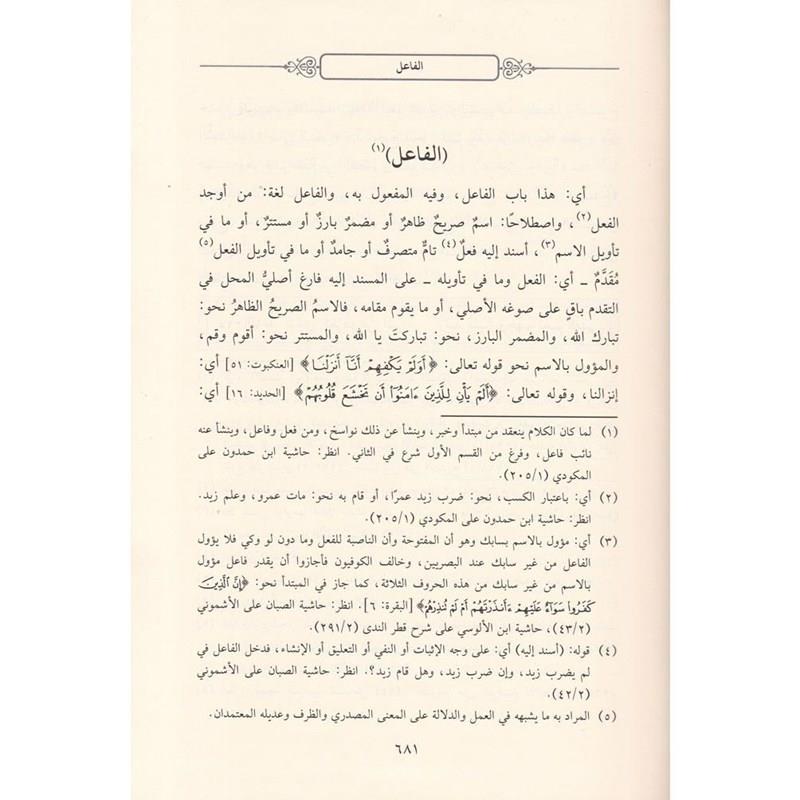 الفاعل
(الفاعل)(١)
أي: هذا باب الفاعل، وفيه المفعول به، والفاعل لغة: من أوجد
الفعل(٢)، واصطلاحًا: اسمٌ صريحٌ ظاهرٌ أو مضمرٌ بارزٌ أو مستترٌ، أو ما في
تأويل الاسم(٣)، أسند إليه فعلٌ(٤) تامٌّ متصرفٌ أو جامدٌ أو ما في تأويل الفعل(٥)
مُقَدَّمٌ ــ أي: الفعل وما في تأويله ــ على المسند إليه فارغ أصليُّ المحل في
التقدم باقٍ على صوغه الأصلي، أو ما يقوم مقامه، فالاسمُ الصريحُ الظاهرُ نحو:
تبارك الله، والمضمر البارز، نحو: تباركتَ يا الله، والمستتر نحو: أقوم وقم،
والمؤول بالاسم نحو قوله تعالى: ﴿أَوَلَمۡ يَكۡفِهِمۡ أَنَّآ أَنزَلۡنَا﴾ [العنكبوت: ٥١] أي:
إنزالنا، وقوله تعالى: ﴿أَلَمۡ يَأۡنِ لِلَّذِينَ ءَامَنُوٓاْ أَن تَخۡشَعَ قُلُوبُهُمۡ﴾ [الحديد: ١٦] أي:
(١) لما كان الكلام ينعقد من مبتدأ وخبر، وينشأ عن ذلك نواسخ، ومن فعل وفاعل، وينشأ عنه
نائب فاعل، وفرغ من القسم الأول شرع في الثاني. انظر: حاشية ابن حمدون على
المكودي (٢٠٥/١).
(٢) أي: باعتبار الكسب، نحو: ضرب زيد عمرًا، أو قام به نحو: مات عمرو، وعلم زيد.
انظر: حاشية ابن حمدون على المكودي (٢٠٥/١).
(٣) أي: مؤول بالاسم بسابك وهو أن المفتوحة وأن الناصبة للفعل وما دون لو وكي فلا يؤول
الفاعل من غير سابك عند البصريين، وخالف الكوفيون فأجازوا أن يقدر فاعل مؤول
بالاسم من غير سابك من هذه الحروف الثلاثة، كما جاز في المبتدأ نحو: ﴿إِنَّ ٱلَّذِينَ
كَفَرُواْ سَوَآءٌ عَلَيۡهِمۡ ءَأَنذَرۡتَهُمۡ أَمۡ لَمۡ تُنذِرۡهُمۡ﴾ [البقرة: ٦]. انظر: حاشية الصبان على الأشموني
(٤٣/٢)، حاشية ابن الألوسي على شرح قطر الندى (٢٩١/٢).
(٤) قوله: (أسند إليه) أي: على وجه الإثبات أو النفي أو التعليق أو الإنشاء، فدخل الفاعل في
لم يضرب زيد، وإن ضرب زيد، وهل قام زيد؟. انظر: حاشية الصبان على الأشموني
(٤٢/٢).
(٥) المراد به ما يشبهه في العمل والدلالة على المعنى المصدري والظرف وعديله المعتمدان.
٦٨١